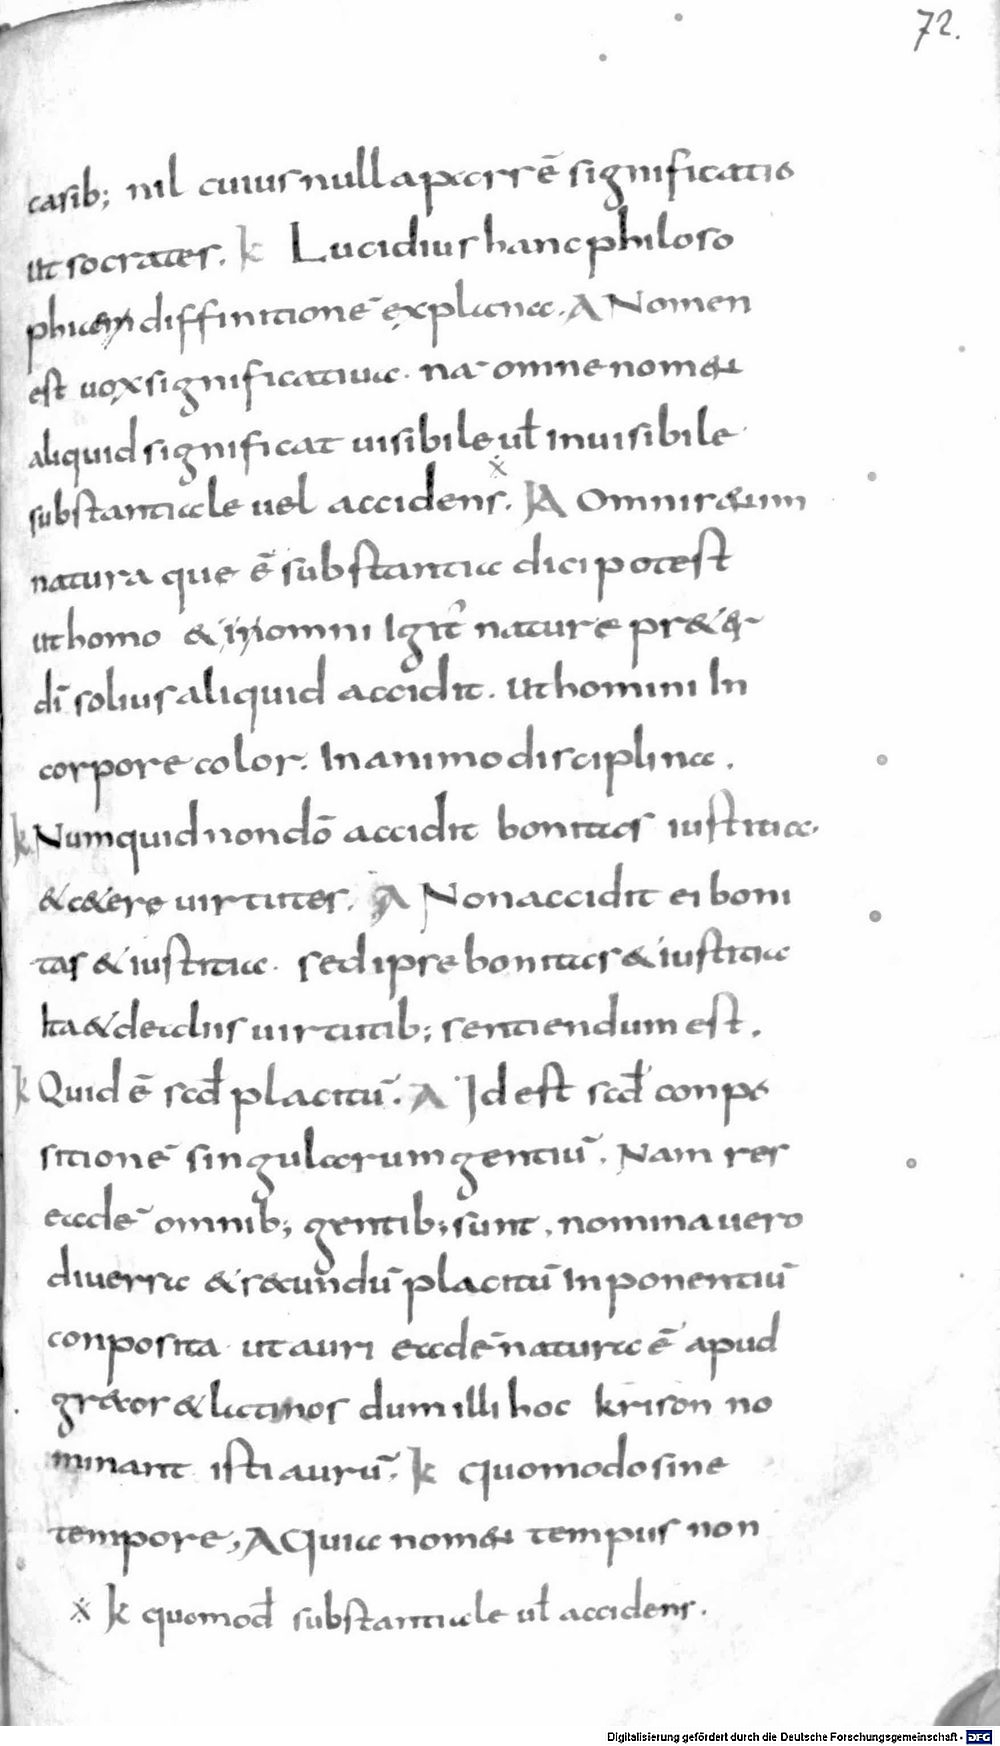 72.
casib; nil cuius nulla pars ē significatio
ut socrates. k Lucidius hanc philoso
phicam diffinitionē explana. A Nomen
est uox significatiua. nā omne nomen
aliquid significat uisibile uɫ inuisibile
substantiale uel accidens. A Omnis etenim
natura quę ē substantia dici potest
ut homo & in omni igit̉ nature
solius aliquid accidit. ut homini In
corpore color. In animo disciplina.
k Numquid non dō accidit bonitas iustitia.
& cęterę uirtutes. A Non accidit ei boni
tas & iustitia. sed ipse bonitas & iustitia
Ita & de aliis uirtutib; sentiendum est.
k Quid ē scđ placitū. A Id est scđ conpo
sitionē singularum gentiū. Nam res
eædē omnib; gentib; sunt, nomina uero
diuersa & secundū placitū Inponentiū
conposita ut auri eadē natura ē apud
grecos & latinos dum illi hoc krison no
minant isti aurū. k quomodo sine
tempore, A Quia nomen tempus non
x k quomođ substantiale uɫ accidens.
Digitalisierung gefördert durch die Deutsche Forschungsgemeinschaft - DFG